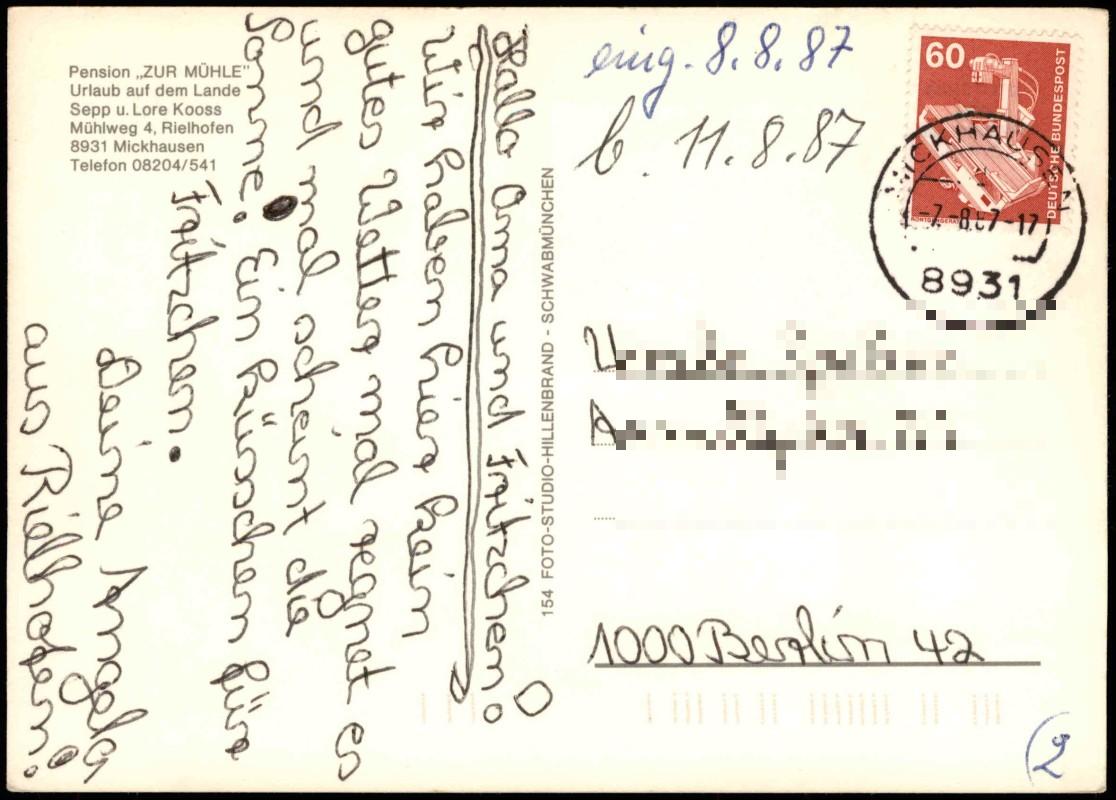 Pension „ZUR MÜHLE"
Urlaub auf dem Lande
Sepp u. Lore Kooss
Mühlweg 4, Rielhofen
8931 Mickhausen
Telefon 08204/541
Hallo Oma und Fritzchen!
Wir haben hier kein
gutes Wetter mal regnet es
und mal scheint die
Sonne. Ein Küschen für
Fritzchen.
Deine Angela
aus Rielhofen!
154 FOTO-STUDIO-HILLENBRAND - SCHWABMÜNCHEN
eing. 8.8.87
b. 11.8.87
60
DEUTSCHE BUNDESPOST
MICKHAUSEN
-7.-8.87-17
8931
1000 Berlin 42
2